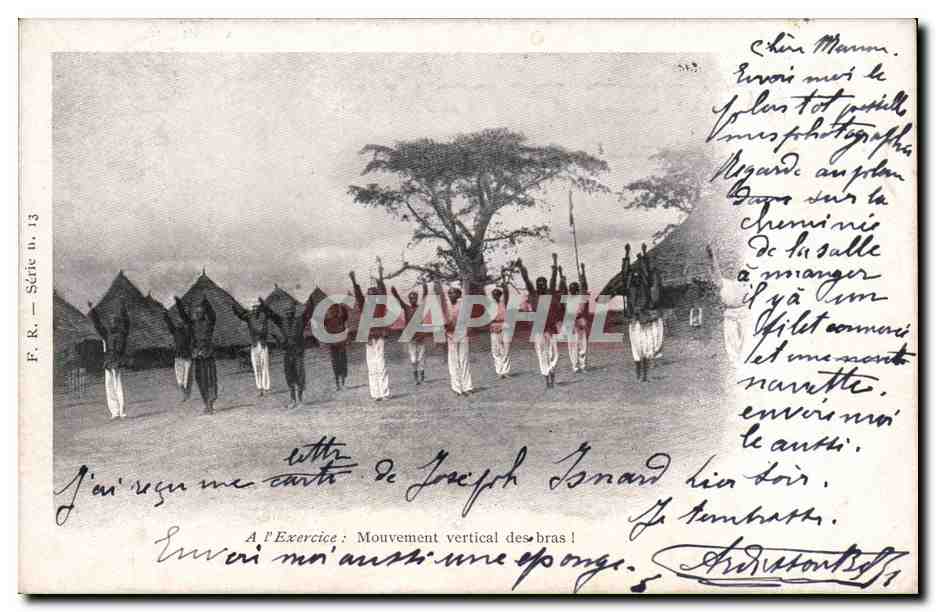 Chère Maman.
Envoi moi le
plus tot possible
mes photographies
Regarde au
dans sur la
cheminée
de la salle
à manger
il y à un
filet commencé
et une
navette.
envoi moi
le aussi.
F. R. — Série n. 13
CPAPHIL
lettre
J'ai reçu une carte de Joseph Isnard hier soir.
Je tembrasse.
A l'Exercice : Mouvement vertical des bras !
Envoi moi aussi une eponge.